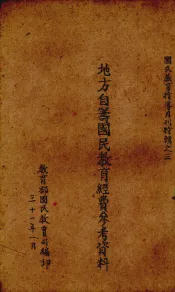 國民教育指導月刊特輯之三
地方自籌國民教育經費參考資料
教育部國民教育司編印
三十一年一月